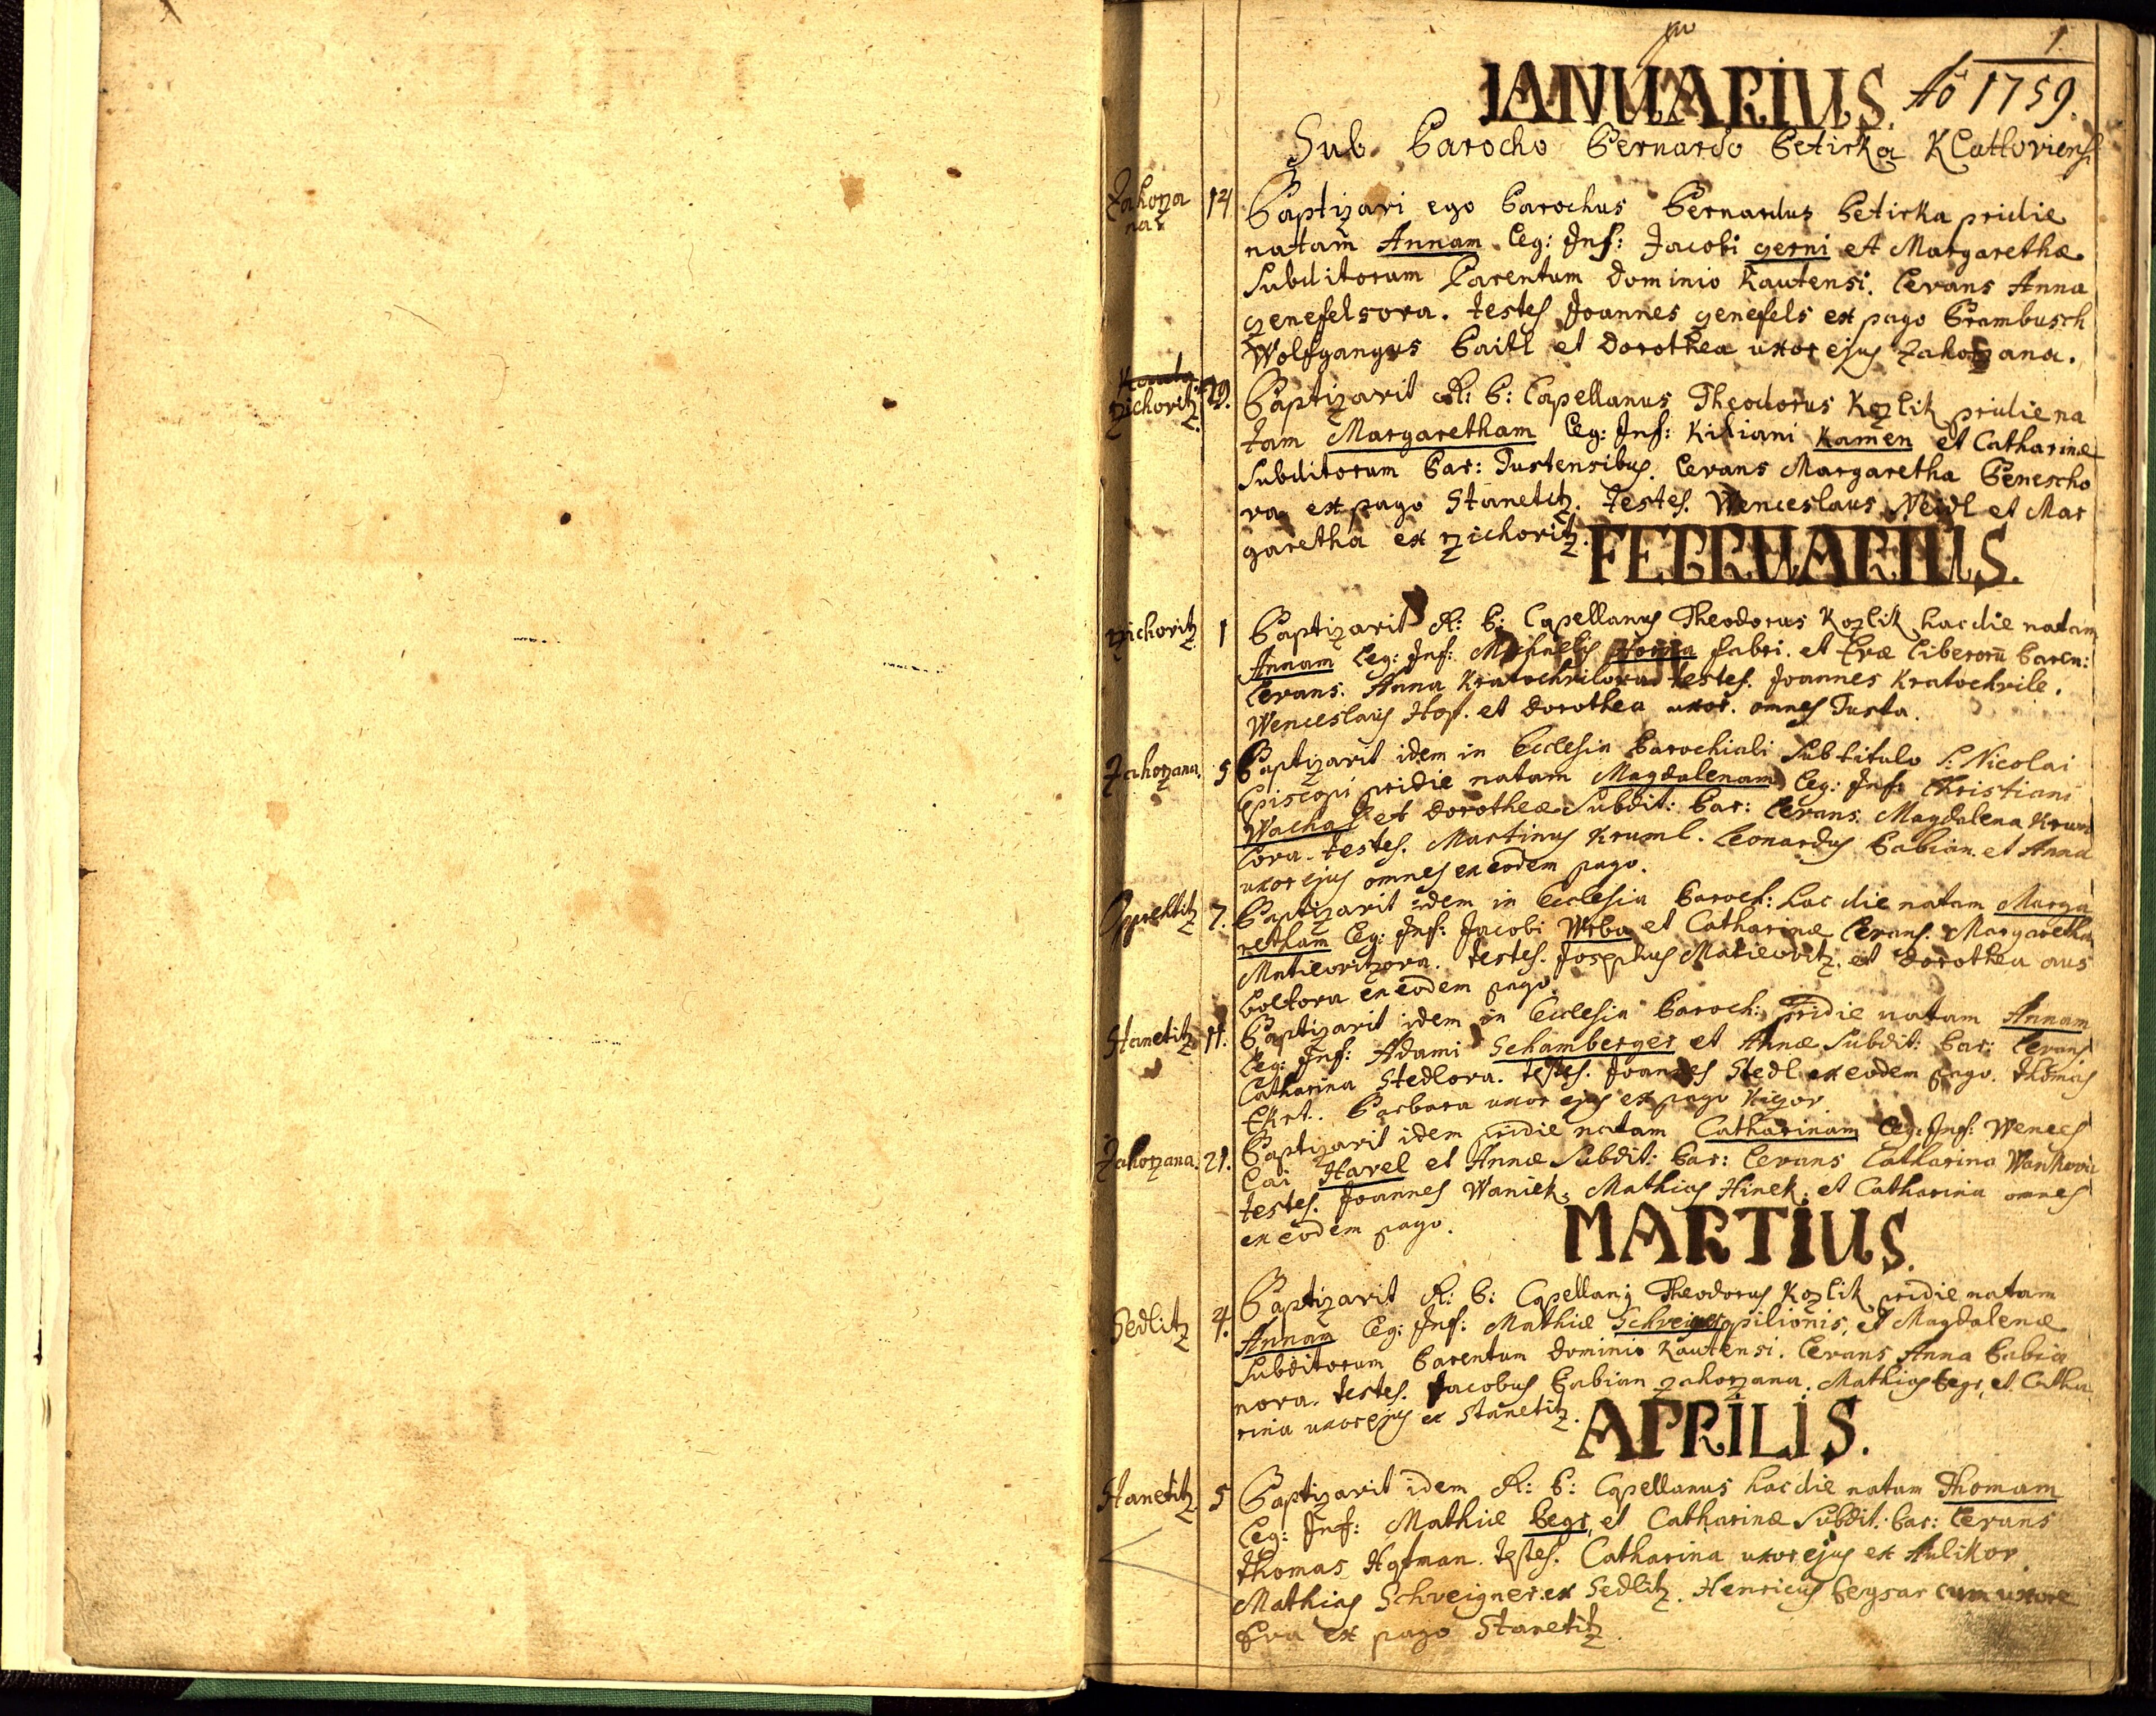 1.
IANUARIUS. Aō 1759.
Sub Parocho Bernardo Petirka Klattoviens
Zahorza
na
14
Baptizavi ego Parochus Bernardus Petirka pridie
natam Annam leg: Inf: Jacobi czerni et Margarethæ
Subditorum Parentum Dominio Kautensi. levans Anna
czenefelsova. testes Joannes czenefels ex pago Prambusch
Wolfgangus Paitl et Dorothea uxor ejus Zahorzana.
rzichovitz 19.
Baptizavit R: P: Capellanus Theodorus Kozlik pridie na
tam Margaretham leg: Inf: Kiliani Kamen et Catharinæ
Subditorum Par: Tustensibus. levans Margaretha Benescho
va ex pago Stanetitz. testes. Wenceslaus Neidl et Mar
garetha ex rzichovitz.
FEBRUARIUS.
rzichovitz 1
Baptizavit R: P: Capellanus Theodorus Kozlik hac die natam
Annam leg: Inf: Michaelis fabri. et Evæ liberorū Paren:
levans. Anna Kratochvilova testes. Joannes Kratochvile.
Wenceslaus Hop. et Dorothea uxor. omnes Tusta.
Zahorzana. 5
Baptizavit idem in Ecclesia Parochiali Sub titulo S: Nicolai
Episcopi pridie natam Magdalenam leg: Inf: Christiani
Wacha et Dorotheæ Subdit: Par: levans Magdalena Krum
lova. testes. Martinus Kruml. Leonardus Babian. et Anna
uxor ejus omnes ex eodem pago.
Oprechtitz 7.
Baptizavit idem in Ecclesia Paroch: hac die natam Marga
retham leg: Inf: Jacobi Wrba et Catharinæ levans. Margaretha
Matieovitzova. testes. Josephus Matieovitz. et Dorothea aus
boltova ex eodem pago.
Stanetitz 11.
Baptizavit idem in Ecclesia Paroch: pridie natam Annam
leg: Inf: Adami Schamberger et Annæ Subdit: Par: levans
Catharina Stedlova. testes. Joannes Stedl ex eodem pago. thomas
Ekrt. Barbara uxor ejus ex pago Kigov.
Zahorzana. 21.
Baptizavit idem pridie natam Catharinam leg: Inf: Wences
lai Havel et Annæ Subdit: Par: levans Catharina
testes. Joannes Waniek. Mathias Hinek. et Catharina omnes
ex eodem pago.
MARTIUS.
Sedlitz 4.
Baptizavit R: P: Capellanus Theodorus Kozlik pridie natam
Annam leg: Inf: Mathiæ Schveigner opilionis, et Magdalenæ
Subditorum Parentum Dominio Kautensi. levans Anna Babia
nova. testes. Jacobus Babian zahorzana. Mathias begr, et Catha
rina uxor ejus ex Stanetitz.
APRILIS.
Stanetitz 5
Baptizavit idem R: P: Capellanus hac die natum Thomam
leg: Inf: Mathiæ begr, et Catharinæ Subdit: Par: levans
thomas Hofman. testes. Catharina uxor ejus ex Aulikov
Mathias Schveigner ex Sedlitz. Henricus beysar cum uxore
Eva ex pago Stanetitz.